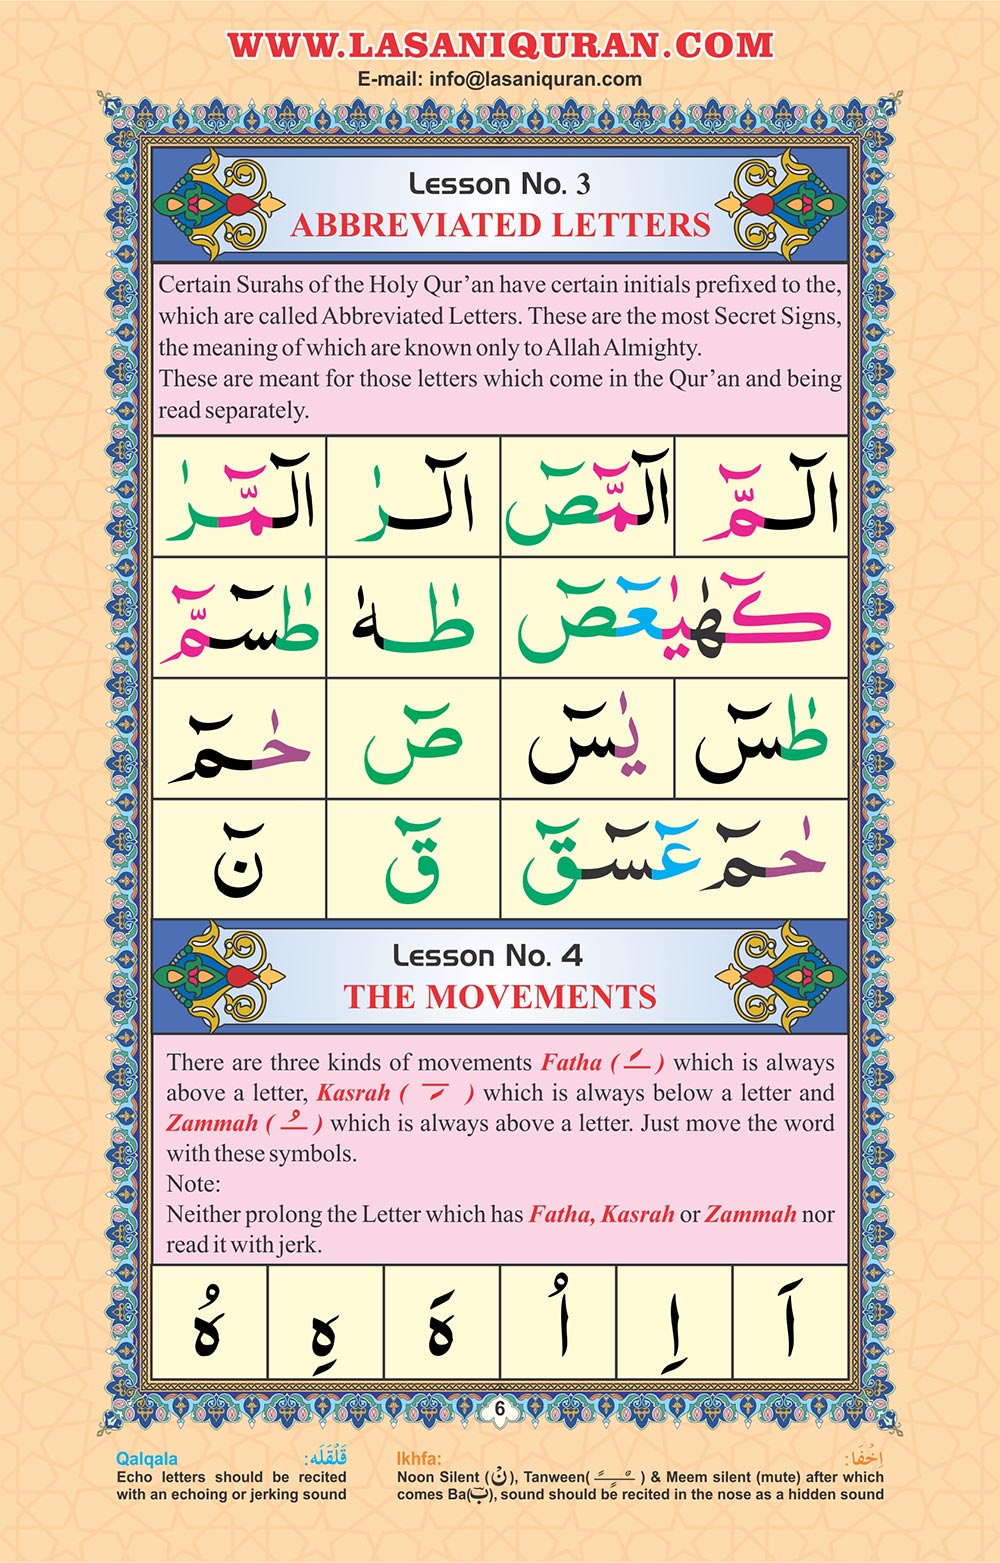 WWW.LASANIQURAN.COM
E-mail: info@lasaniquran.com
Lesson No. 3
ABBREVIATED LETTERS
Certain Surahs of the Holy Qur’an have certain initials prefixed to the,
which are called Abbreviated Letters. These are the most Secret Signs,
the meaning of which are known only to Allah Almighty.
These are meant for those letters which come in the Qur’an and being
read separately.
الٓمّٓ الٓمّٓصٓ الٓرٰ الٓمّٓرٰ
كٓهٰيٰعٓصٓ طٰهٰ طٰسٓمّٓ
طٰسٓ يٰسٓ صٓ حٰمٓ
حٰمٓ عٓسٓقٓ قٓ نٓ
Lesson No. 4
THE MOVEMENTS
There are three kinds of movements Fatha ( ـَ ) which is always
above a letter, Kasrah ( ـِ ) which is always below a letter and
Zammah ( ـُ ) which is always above a letter. Just move the word
with these symbols.
Note:
Neither prolong the Letter which has Fatha, Kasrah or Zammah nor
read it with jerk.
اَ اِ اُ هَ هِ هُ
6
Qalqala قَلْقَلَه:
Echo letters should be recited
with an echoing or jerking sound
Ikhfa: اِخْفَا:
Noon Silent (نْ), Tanween( ـًـٍـٌ ) & Meem silent (mute) after which
comes Ba(ب), sound should be recited in the nose as a hidden sound